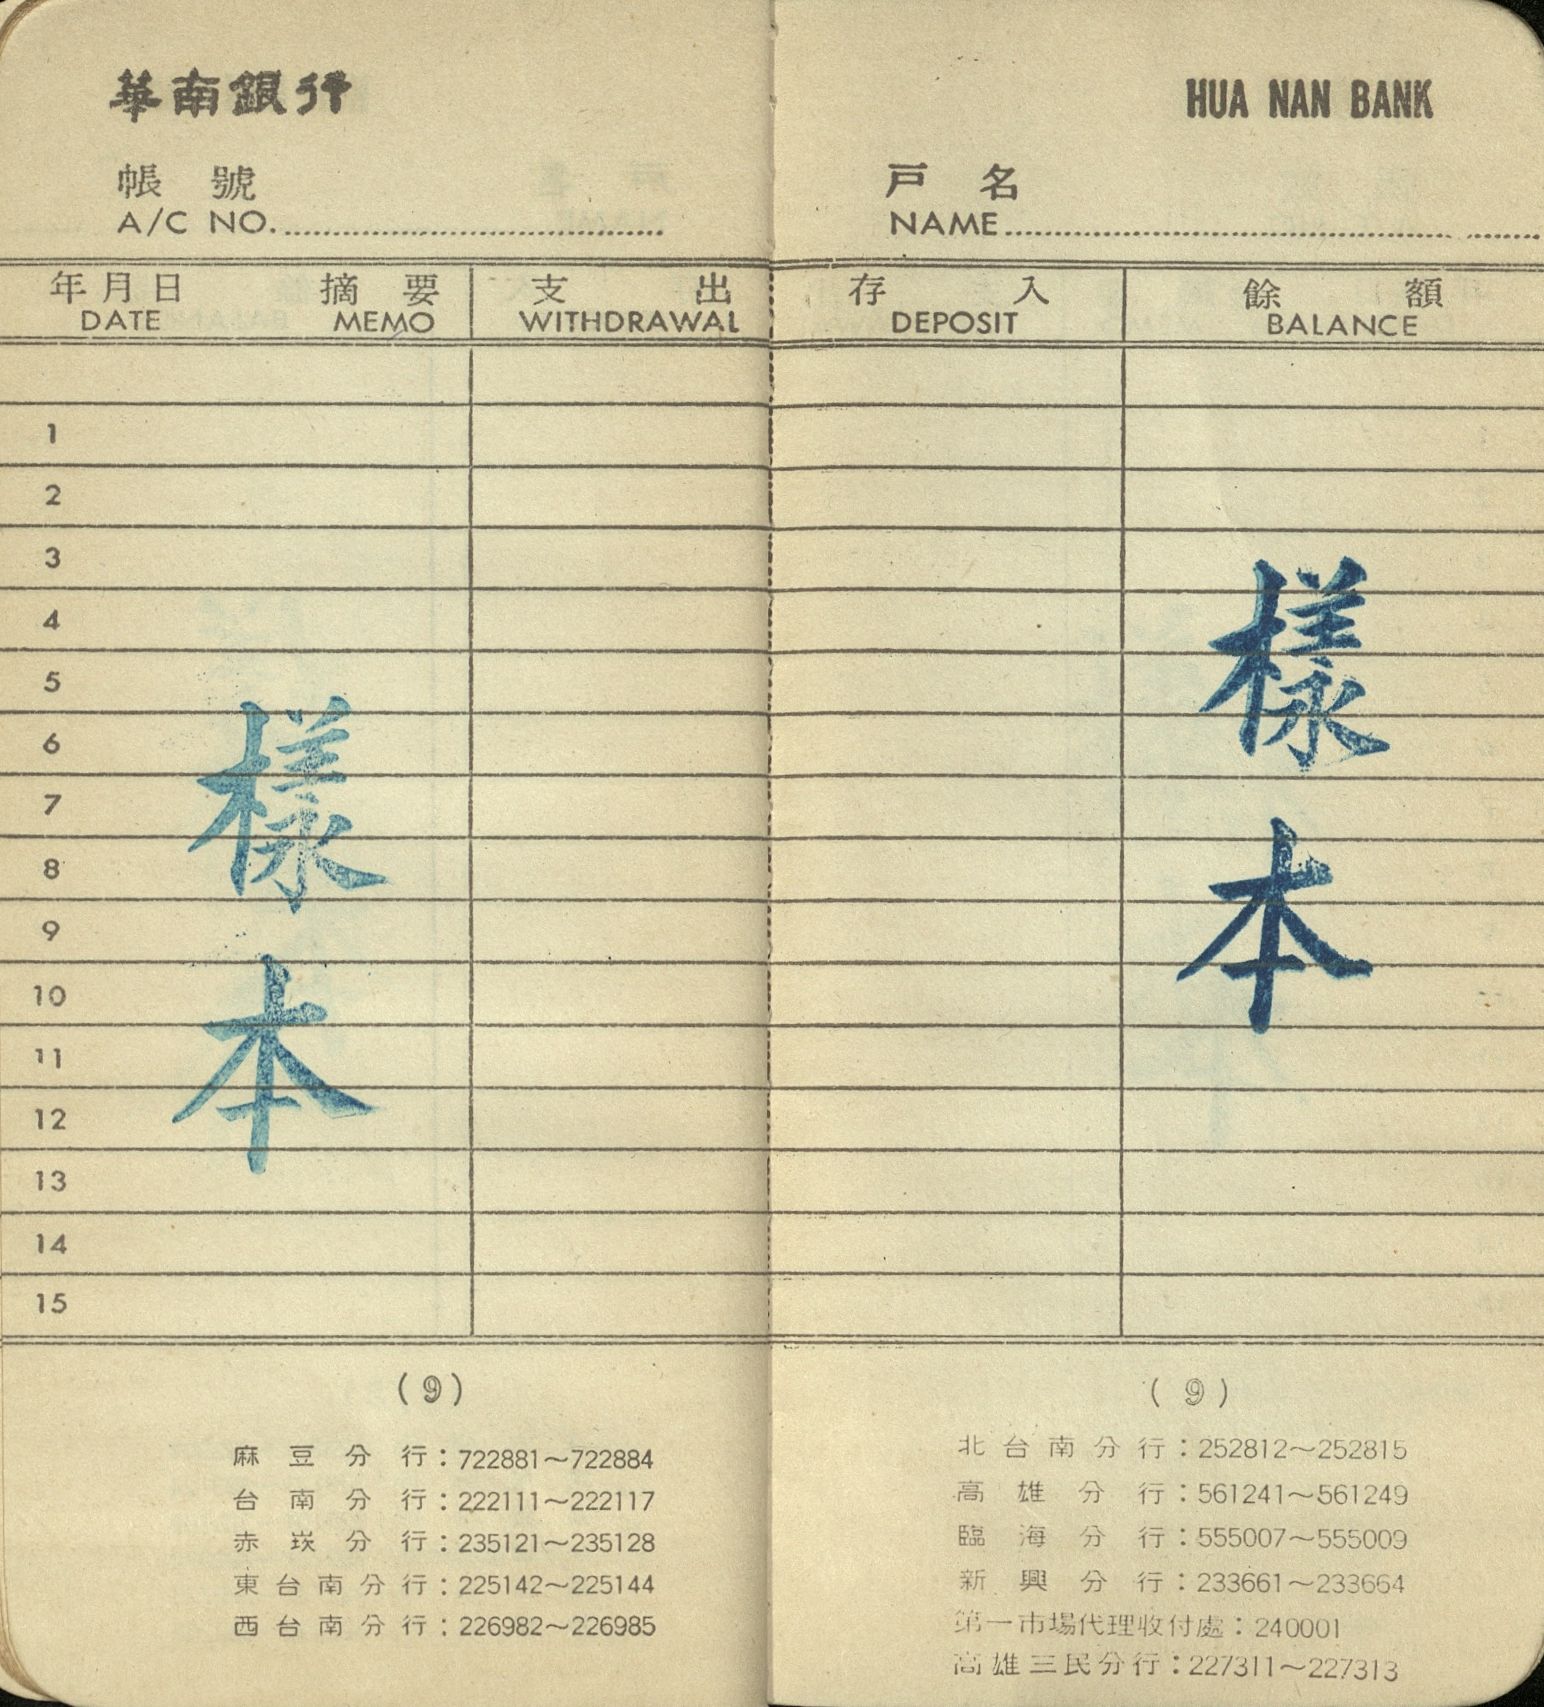 華南銀行
帳號
A/C NO.
年月日 摘要 支出
DATE MEMO WITHDRAWAL
1
2
3
4
5
6
7
8
9
10
11
12
13
14
15
樣本
(9)
麻豆分行：722881～722884
台南分行：222111～222117
赤崁分行：235121～235128
東台南分行：225142～225144
西台南分行：226982～226985
HUA NAN BANK
戶名
NAME
存入 餘額
DEPOSIT BALANCE
樣本
(9)
北台南分行：252812～252815
高雄分行：561241～561249
臨海分行：555007～555009
新興分行：233661～233664
第一市場代理收付處：240001
高雄三民分行：227311～227313